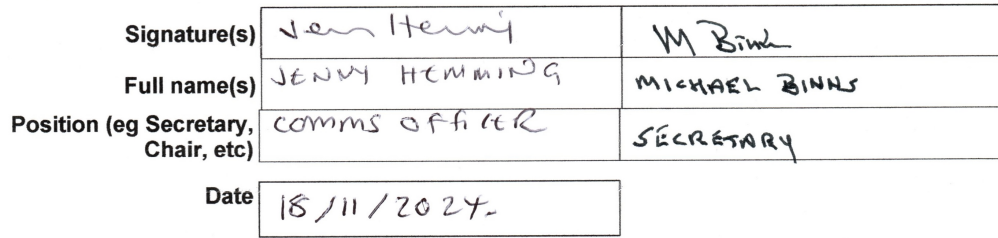 Signature(s) Jen Hemmi M Binn
Full name(s) JENNY HEMMING MICHAEL BINNS
Position (eg Secretary, COMMS OFFICER SECRETARY
Chair, etc)
Date 18/11/2024.